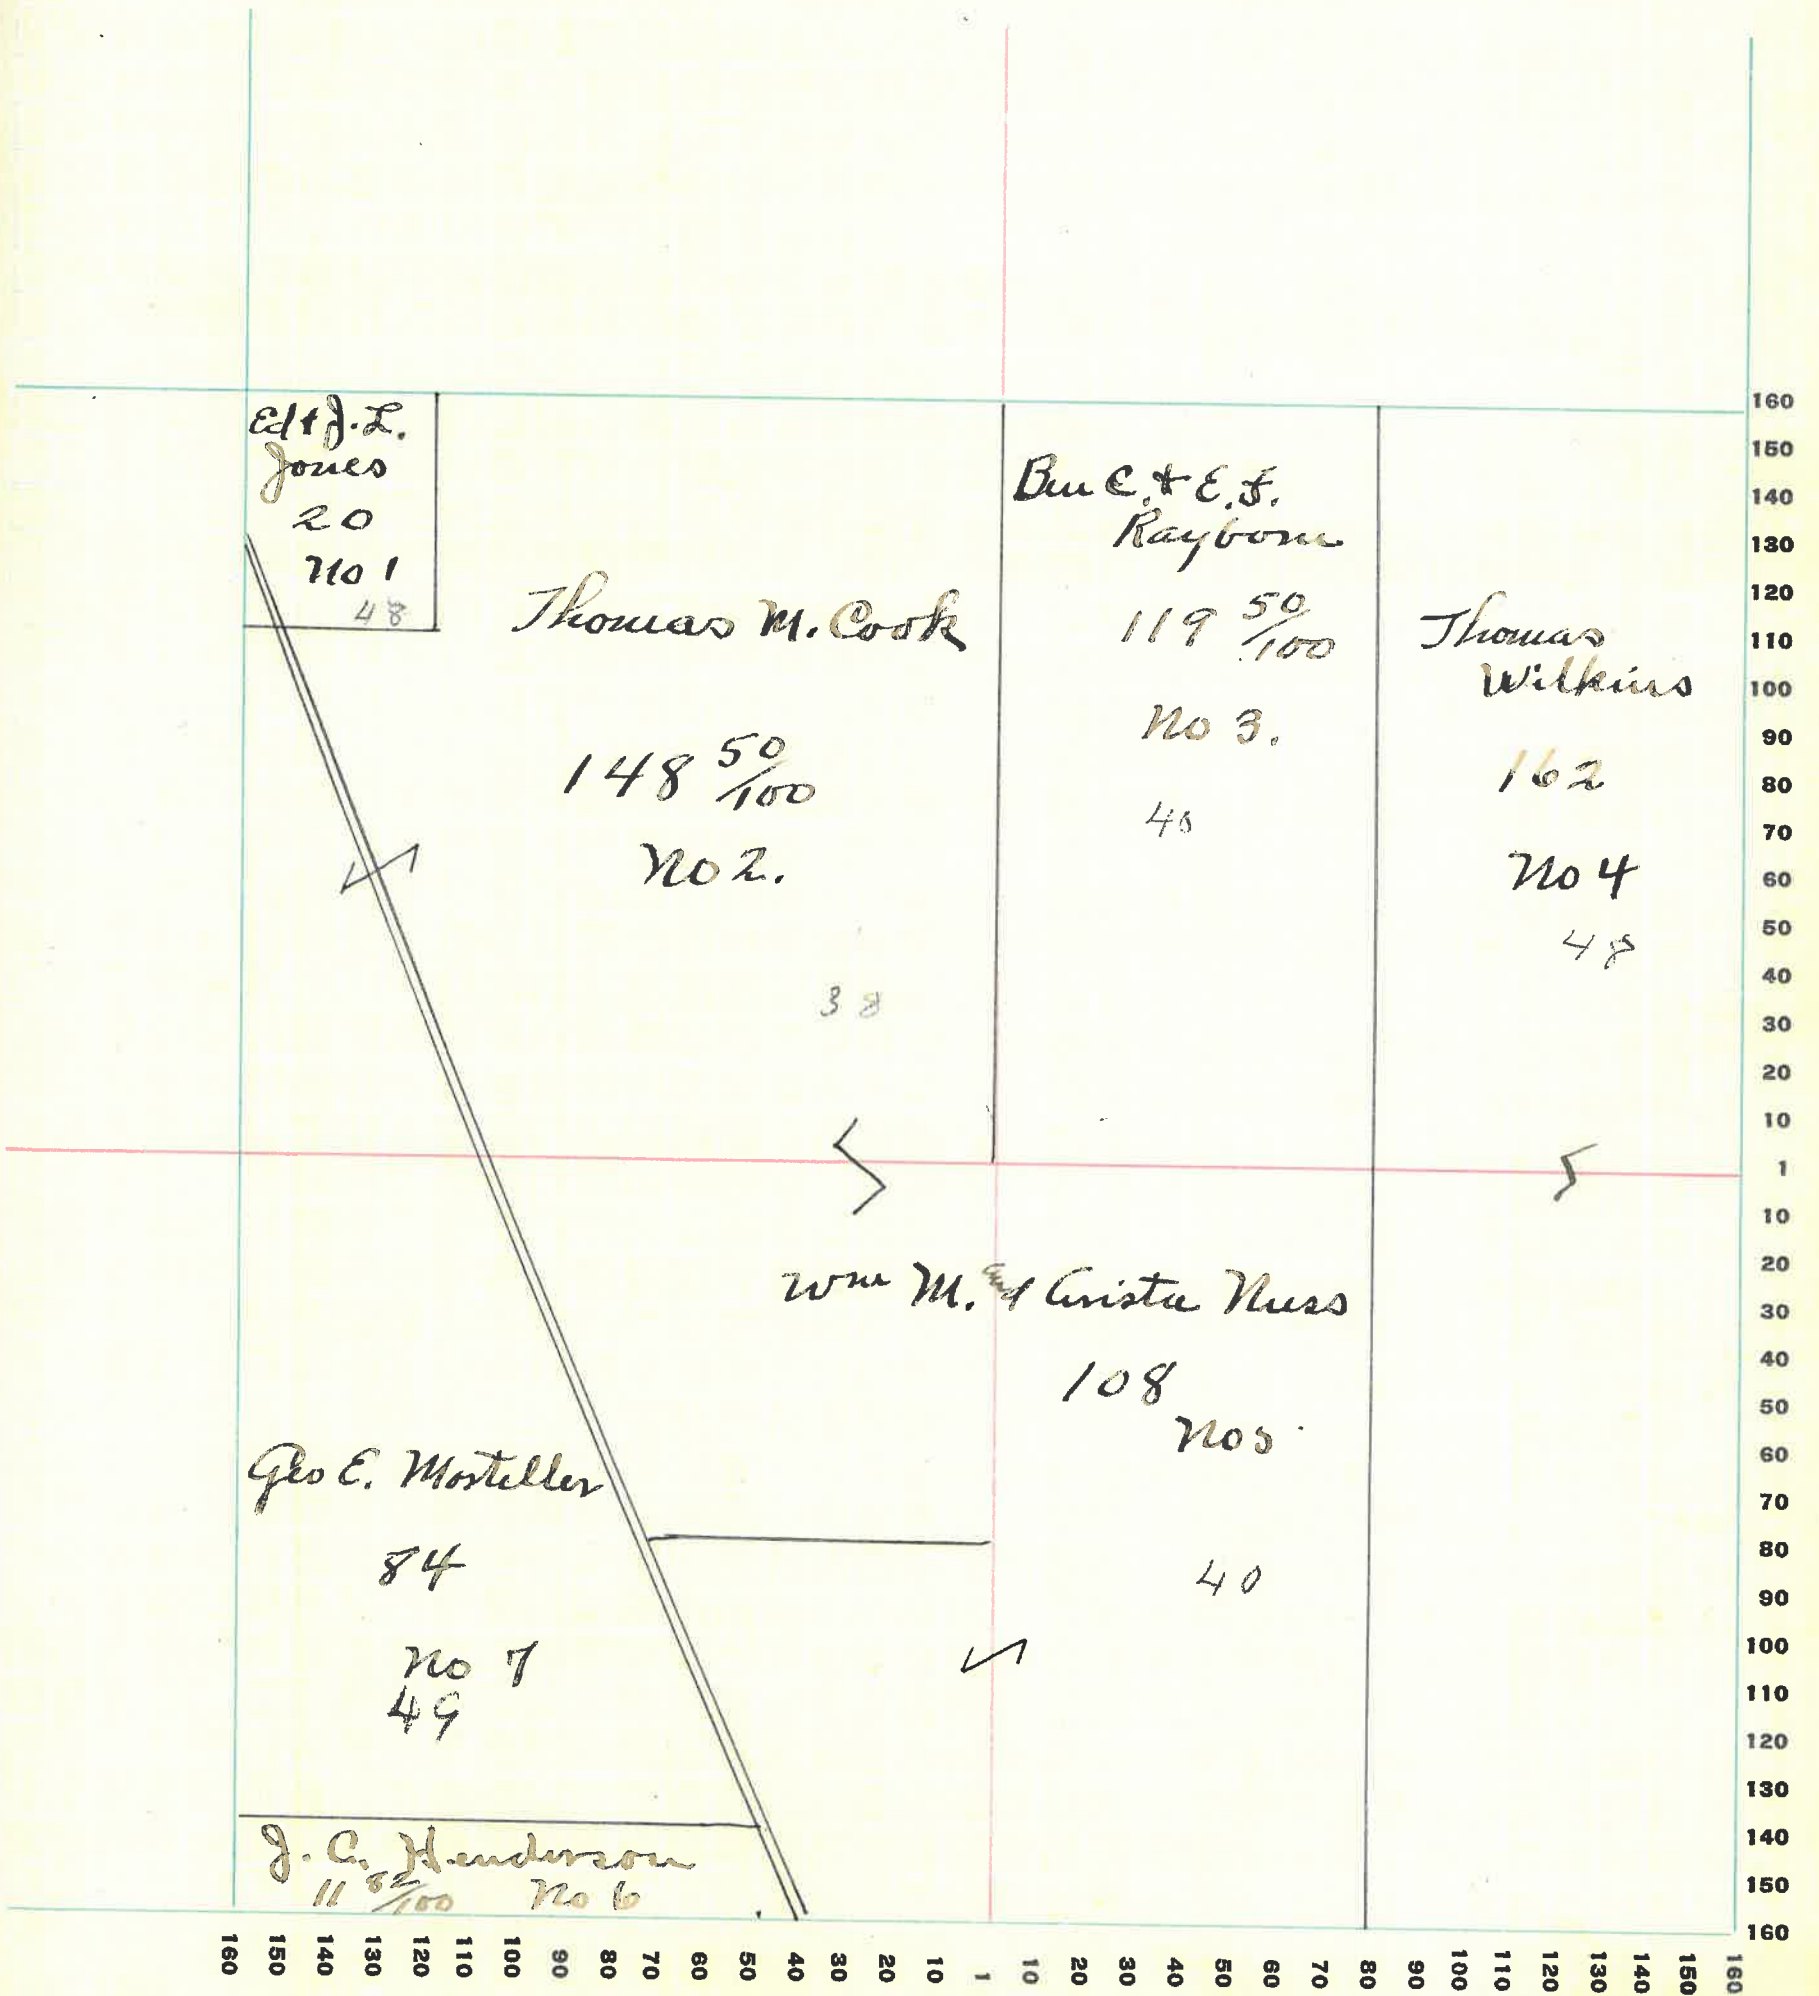 Ed & J. L.
Jones
20
No 1
48
Thomas M. Cook
148 50/100
No 2.
38
Ben C. & E. F.
Rayborn
119 50/100
No 3.
40
Thomas
Wilkins
162
No 4
48
Wm M. and Arista Nuss
108
No 5
40
Geo E. Mosteller
84
No 7
49
J. C. Henderson
11 82/100 No 6
160
150
140
130
120
110
100
90
80
70
60
50
40
30
20
10
1
10
20
30
40
50
60
70
80
90
100
110
120
130
140
150
160
160 150 140 130 120 110 100 90 80 70 60 50 40 30 20 10 1 10 20 30 40 50 60 70 80 90 100 110 120 130 140 150 160